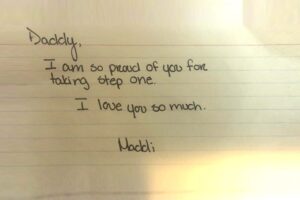 Daddy,
I am so proud of you for
taking step one.
I love you so much.
Maddi